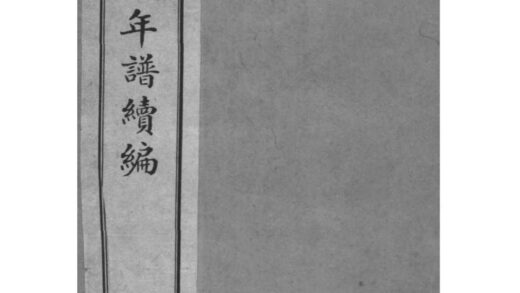 年譜續編